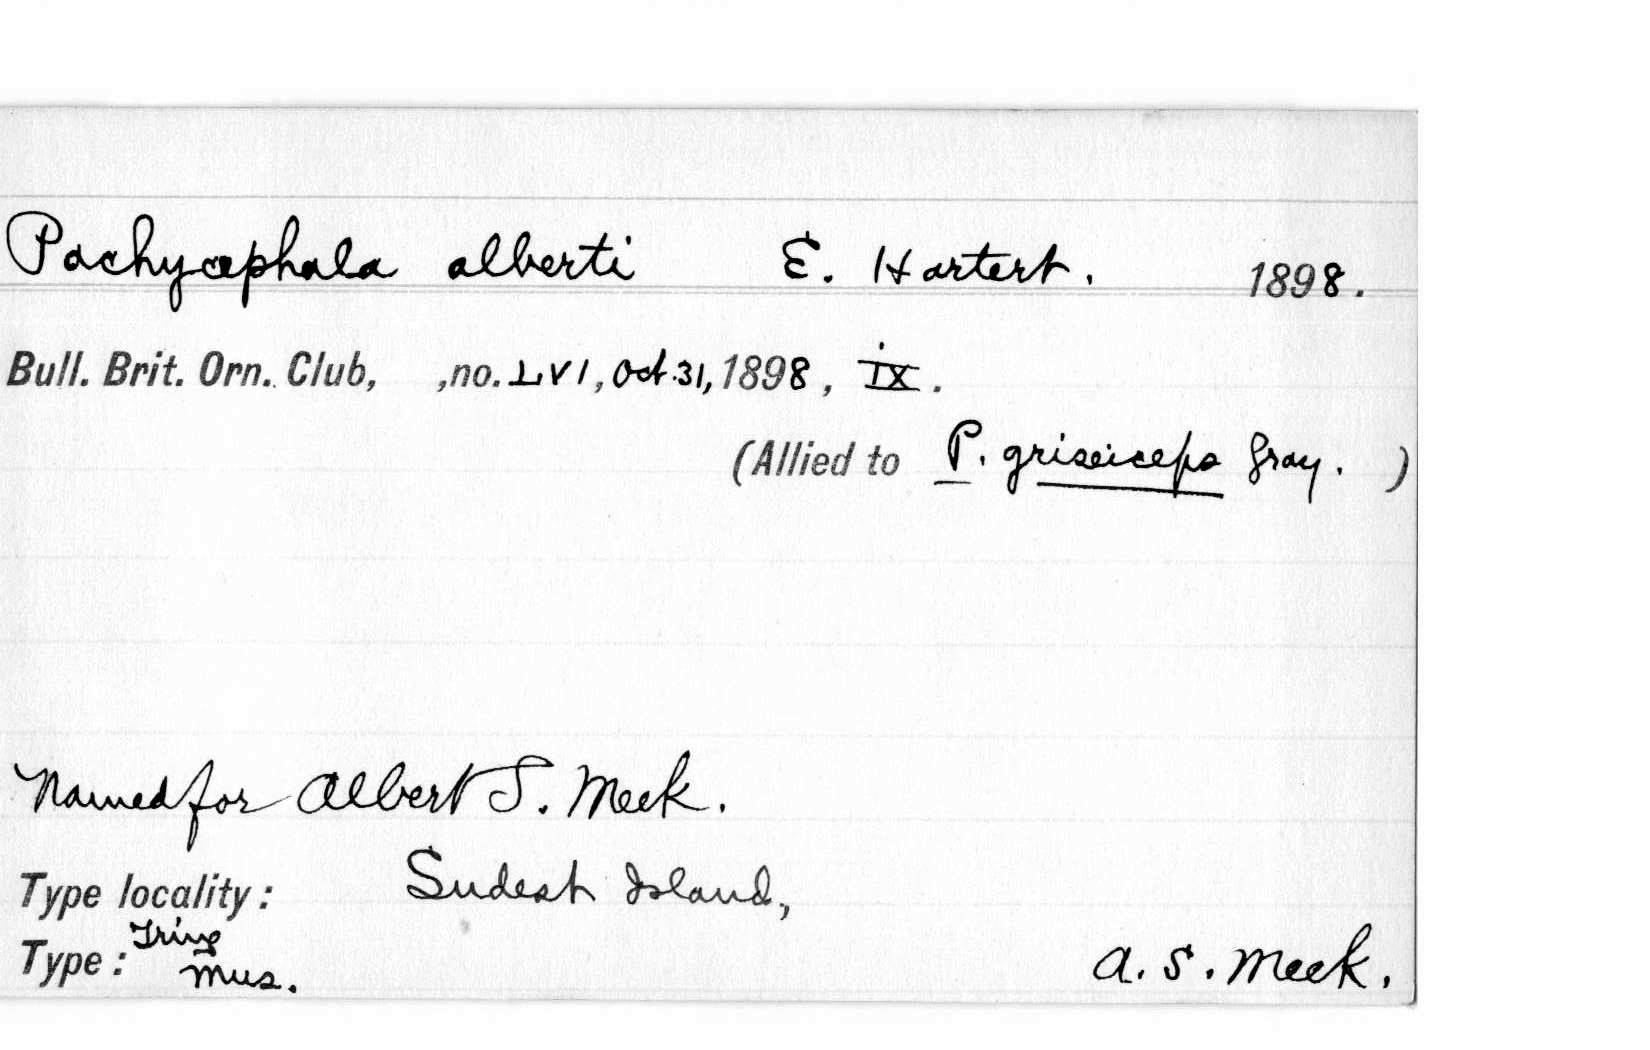 Pachycephala alberti E. Hartert. 1898.
Bull. Brit. Orn. Club, ,no. LVI, Oct. 31, 1898, IX.
(Allied to P. griseiceps Gray. )
Named for Albert S. Meek.
Type locality: Sudest Island,
Type: Tring Mus. A. S. Meek.